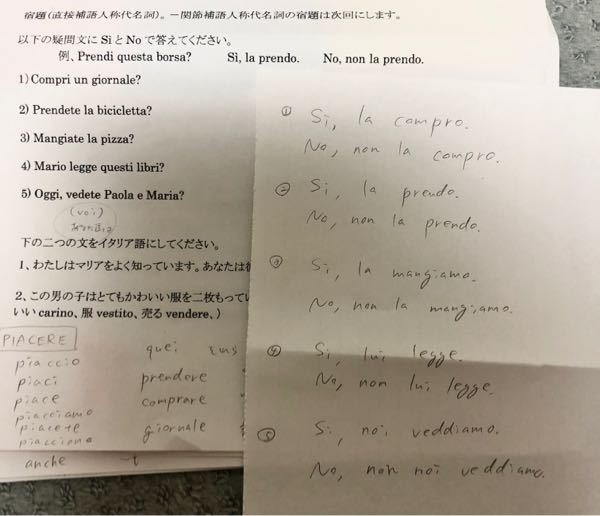 宿題(直接補語人称代名詞)。－関節補語人称代名詞の宿題は次回にします。
以下の疑問文に Sì と No で答えてください。
例、Prendi questa borsa? Sì, la prendo. No, non la prendo.
1) Compri un giornale?
2) Prendete la bicicletta?
3) Mangiate la pizza?
4) Mario legge questi libri?
5) Oggi, vedete Paola e Maria?
(voi)
あなた達は
下の二つの文をイタリア語にしてください。
1、わたしはマリアをよく知っています。あなたは
2、この男の子はとてもかわいい服を二枚もって
いい carino、服 vestito、売る vendere、)
PIACERE
piaccio quei
piaci prendere
piace comprare
piacciamo
piacete giornale
piacciono
anche
① Si, la compro.
No, non la compro.
② Si, la prendo.
No, non la prendo.
③ Si, la mangiamo.
No, non la mangiamo.
④ Si, lui legge.
No, non lui legge.
⑤ Si, noi veddiamo.
No, non noi veddiamo.